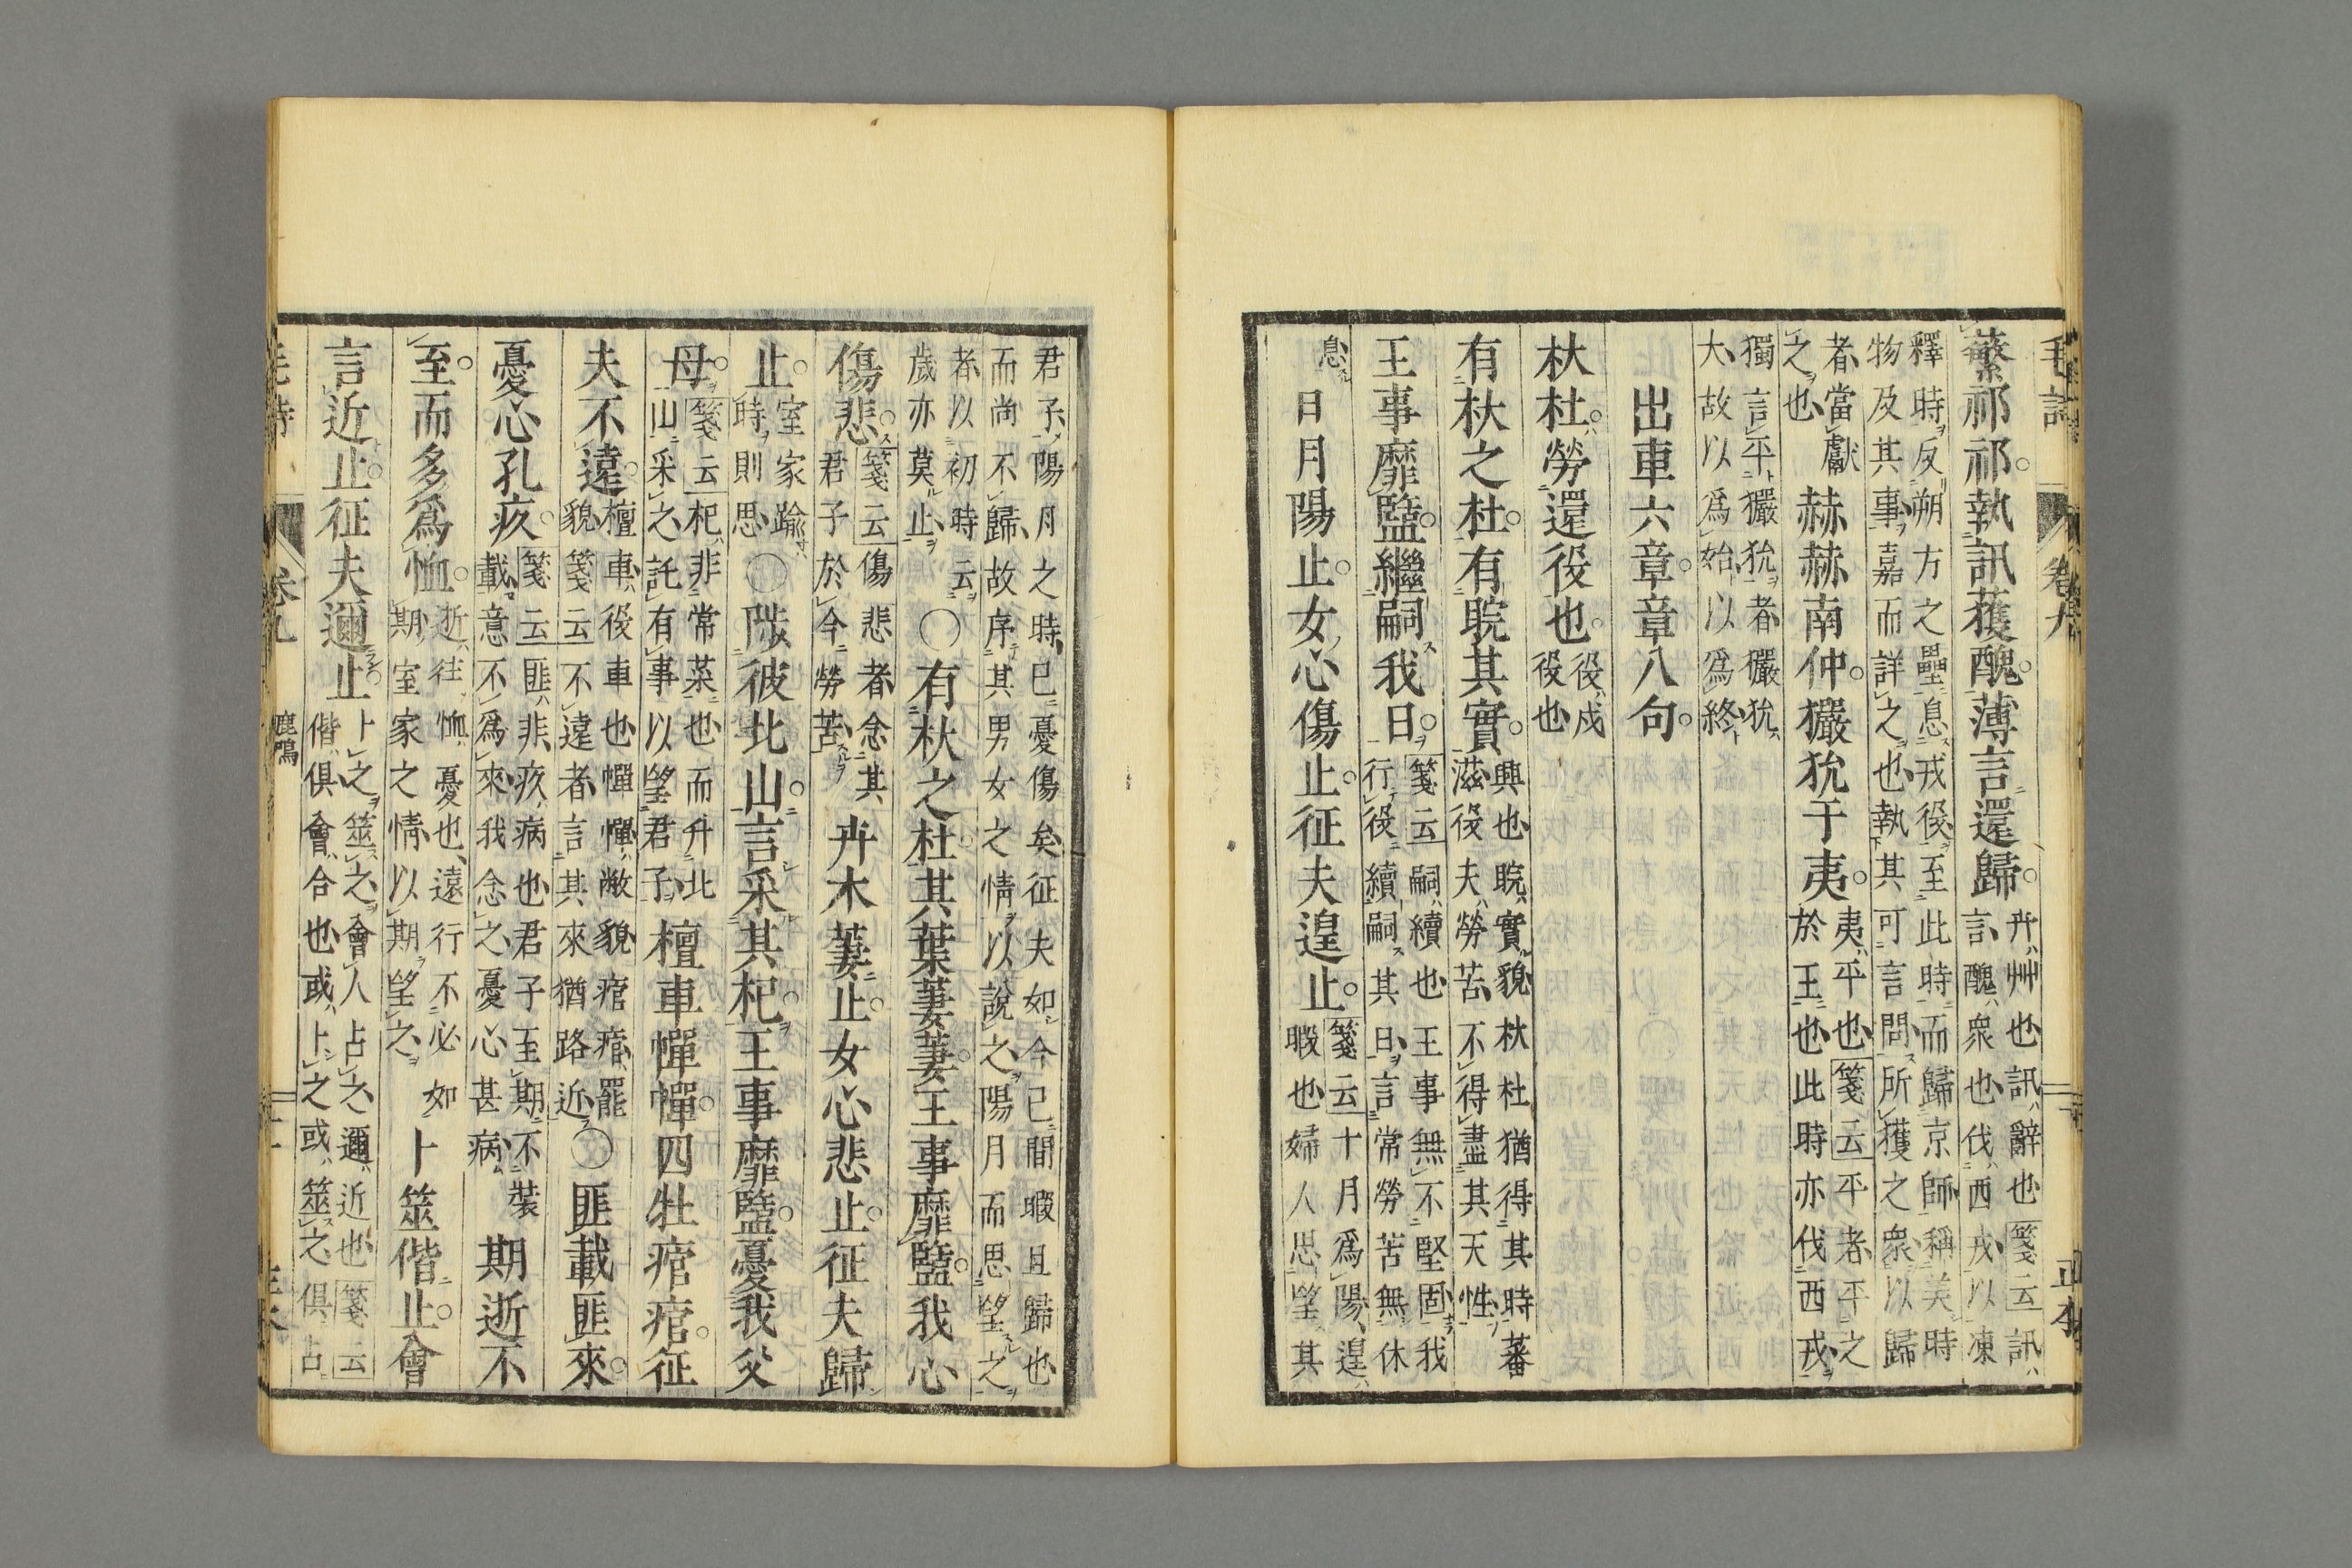 毛詩 卷九
蘩祁祁執訊獲醜薄言還歸 卉艸也訊辭也箋云訊
言醜衆也伐西戎以凍
釋時反朔方之壘息戎役至此時而歸京師稱美時
物及其事嘉而詳之也執其可言問所獲之衆以歸
者當獻
之也
赫赫南仲玁狁于夷 夷平也箋云平者平之
於王也此時亦伐西戎
獨言平玁狁者玁狁
大故以爲始以爲終
出車六章章八句
杕杜勞還役也 役戍
役也
有杕之杜有睆其實 興也睆實貌杕杜猶得其時蕃
滋役夫勞苦不得盡其天性
王事靡盬繼嗣我日 箋云嗣續也王事無不堅固我
行役續嗣其日言常勞苦無休
息
日月陽止女心傷止征夫遑止 箋云十月爲陽遑
暇也婦人思望其
君子陽月之時已憂傷矣征夫如今已間暇且歸也
而尚不歸故序其男女之情以說之陽月而思望之
者以初時云
歲亦莫止
○有杕之杜其葉萋萋王事靡盬我心
傷悲 箋云傷悲者念其
君子於今勞苦
卉木萋止女心悲止征夫歸
止 室家踰
時則思
○陟彼北山言采其杞王事靡盬憂我父
母 箋云杞非常菜也而升北
山采之託有事以望君子
檀車幝幝四牡痯痯征
夫不遠 檀車役車也幝幝敝貌痯痯罷
貌箋云不遠者言其來猶路近
○匪載匪來
憂心孔疚 箋云匪非疚病也君子至期不裝
載意不爲來我念之憂心甚病
期逝不
至而多爲恤 逝往恤憂也遠行不必如
期室家之情以期望之
卜筮偕止會
言近止征夫邇止 卜之筮之會人占之邇近也箋云
偕俱會合也或卜之或筮之俱占
毛詩 卷九 鹿鳴